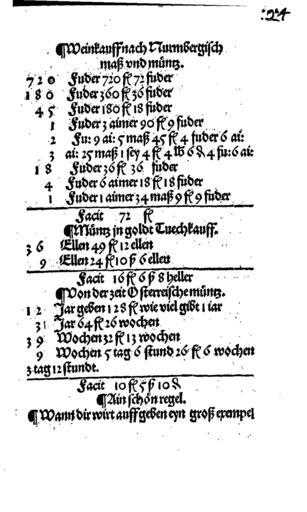 ¶Weinkauff nach Nurmbergisch
maß vnd müntz.
720 Fuder 720 fl 72 fuder
180 Fuder 360 fl 36 fuder
45 Fuder 180 fl 18 fuder
1 Fuder 3 aimer 90 fl 9 fuder
2 Fu: 9 ai: 5 maß 45 fl 4 fuder 6 ai:
3 ai: 25 maß 1 sey 4 fl 4 lb 6 ₰ 4 fu: 6 ai:
18 Fuder 36 fl 36 fuder
4 Fuder 6 aimer 18 fl 18 fuder
1 Fuder 1 aimer 34 maß 9 fl 9 fuder
Facit 72 fl
¶Müntz in goldt Tuechkauff.
36 Ellen 49 fl 12 ellen
9 Ellen 24 fl 10 ß 6 ellen
Facit 16 fl 6 ß 8 heller
¶Von der zeit Osterreische müntz.
12 Jar geben 128 fl wie viel gibt 1 iar
31 Jar 64 fl 26 wochen
39 Wochen 32 fl 13 wochen
9 Wochen 5 tag 6 stund 26 fl 6 wochen
3 tag 12 stundt.
Facit 10 fl 5 ß 10 ₰
¶Ain schön regel.
¶Wann dir wirt auffgeben eyn groß exempel